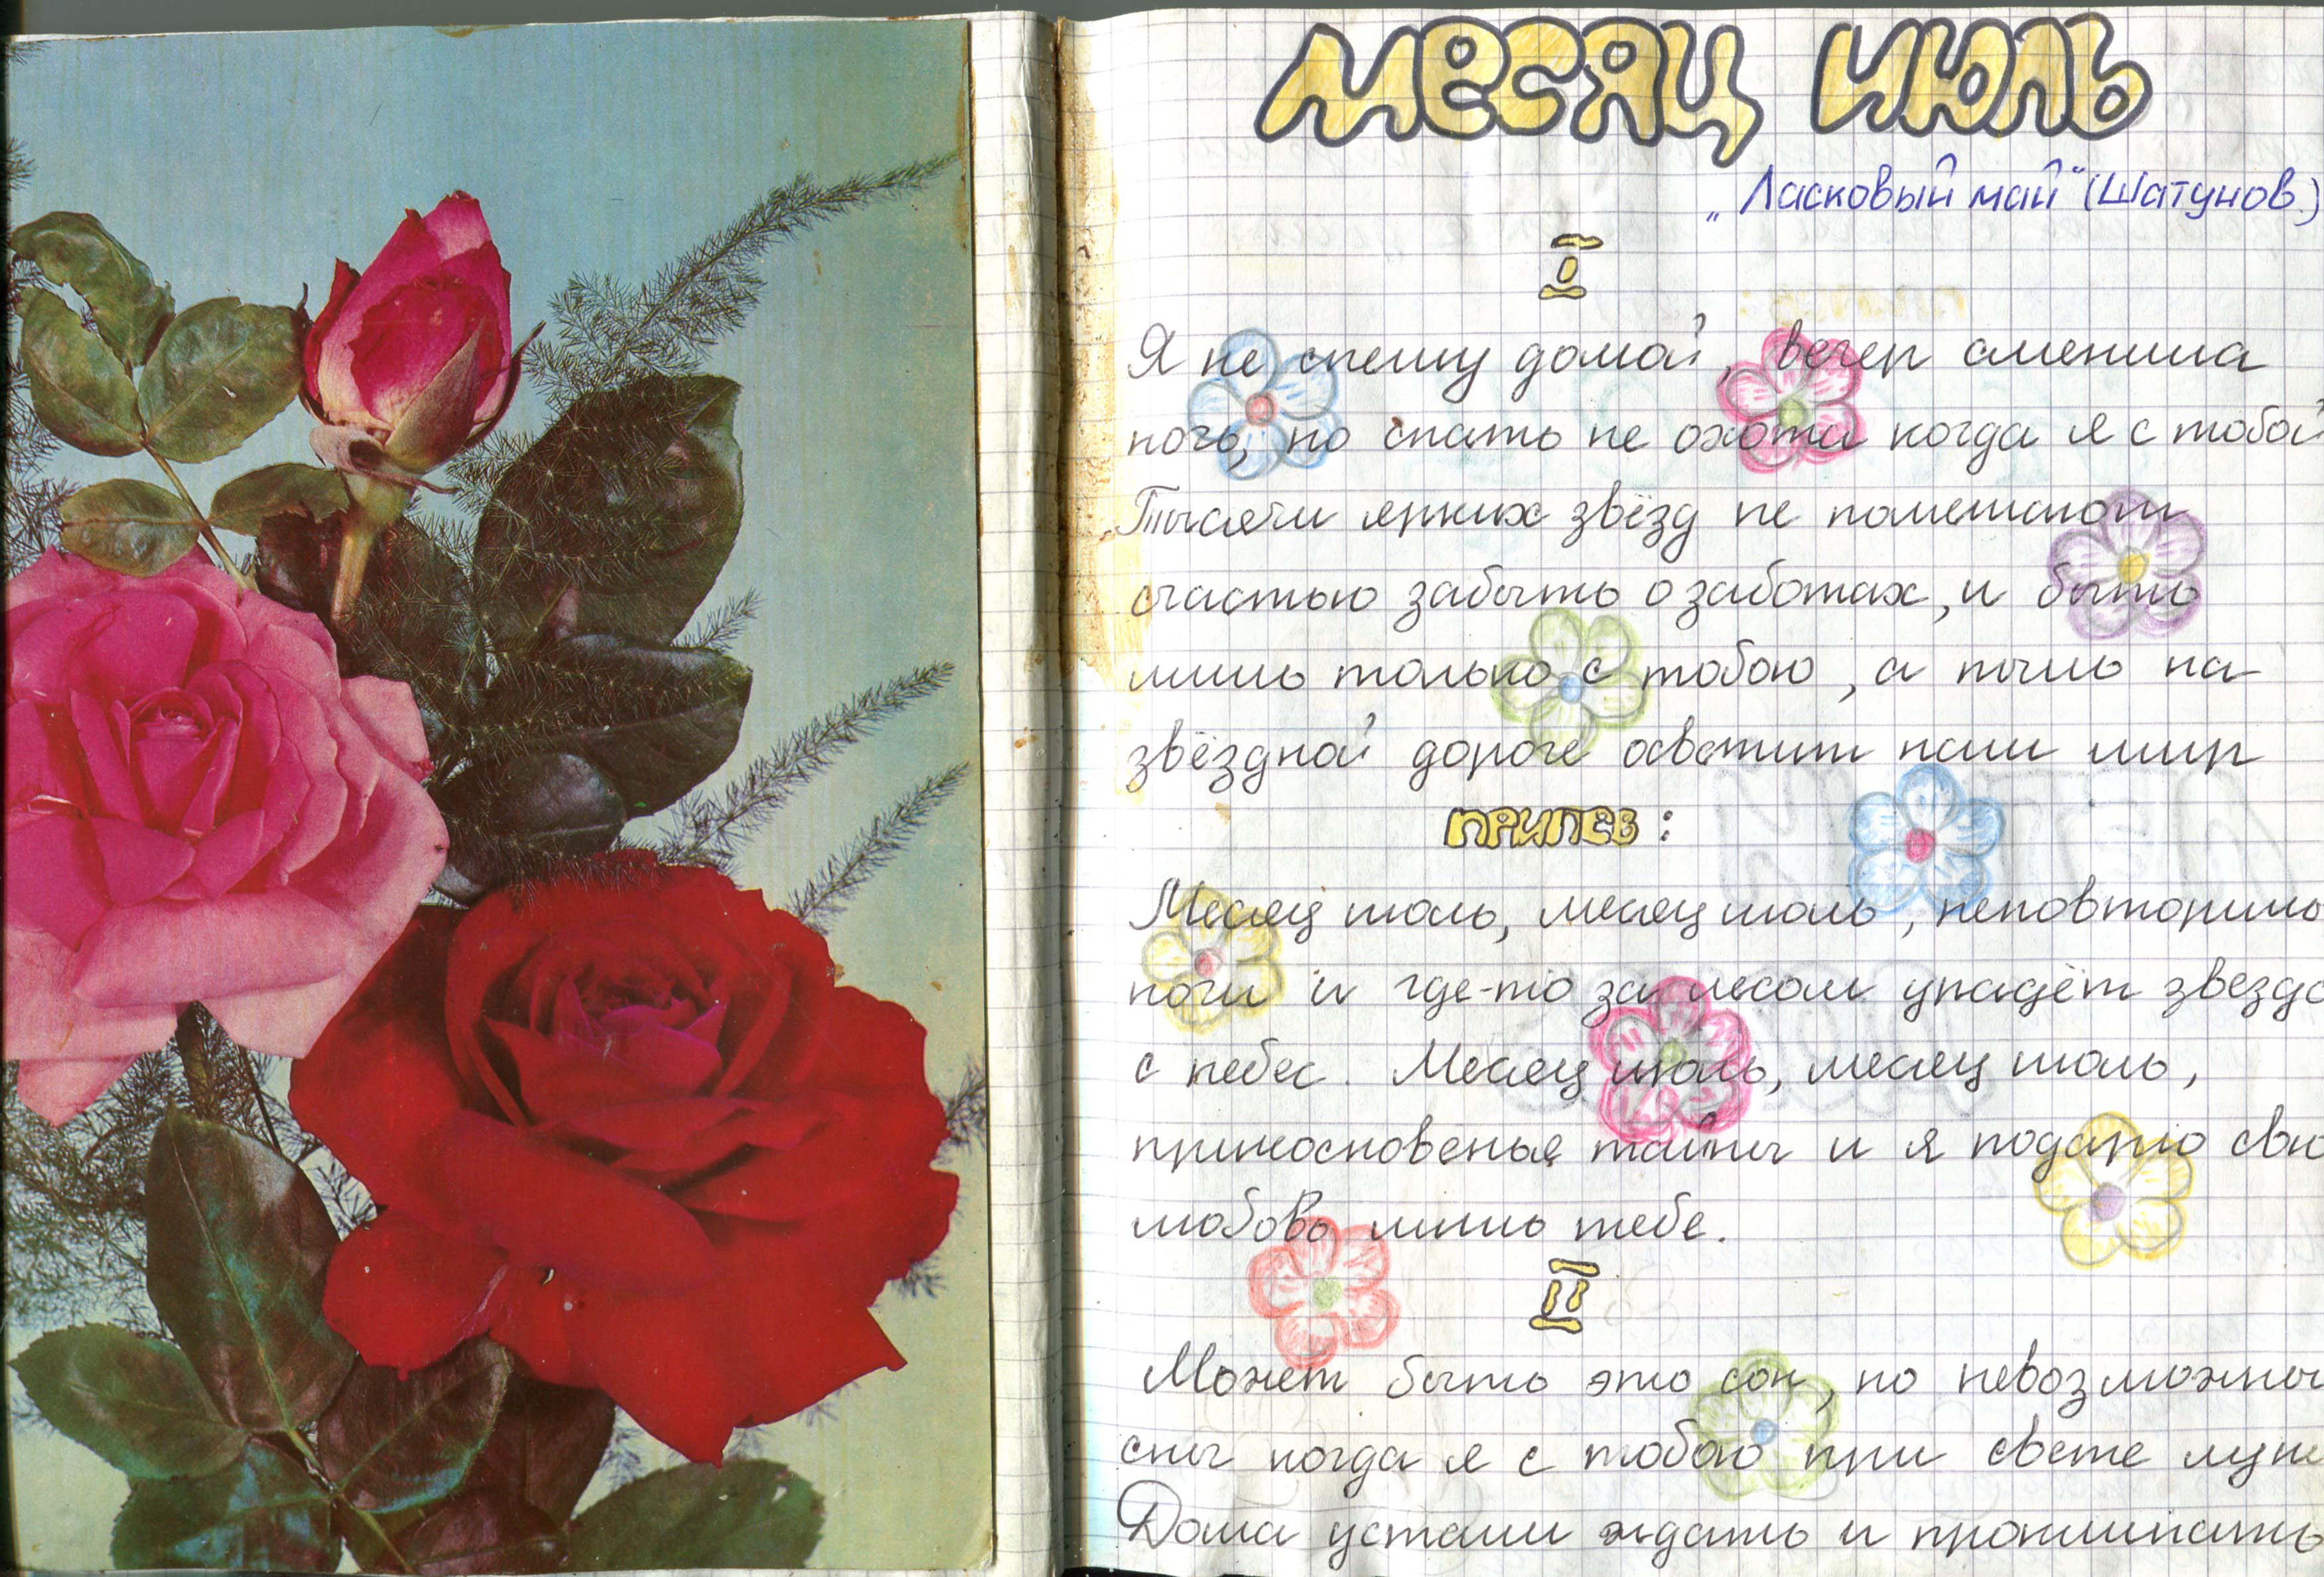 МЕСЯЦ ИЮЛЬ
„Ласковый май" (Шатунов)
I
Я не спешу домой, вечер сменила
ночь, но спать не охота когда я с тобой
Тысячи ярких звёзд не помешают
счастью забыть о заботах, и быть
лишь только с тобою, а пыль на
звёздной дороге осветит наш мир
ПРИПЕВ:
Месяц июль, месяц июль, неповторимы
ночи и где-то за лесом упадёт звезда
с небес. Месяц июль, месяц июль,
прикосновенья тайны и я подарю свою
любовь лишь тебе.
II
Может быть это сон, но невозможны
сны когда я с тобою при свете луны
Дома устали ждать и проклинать